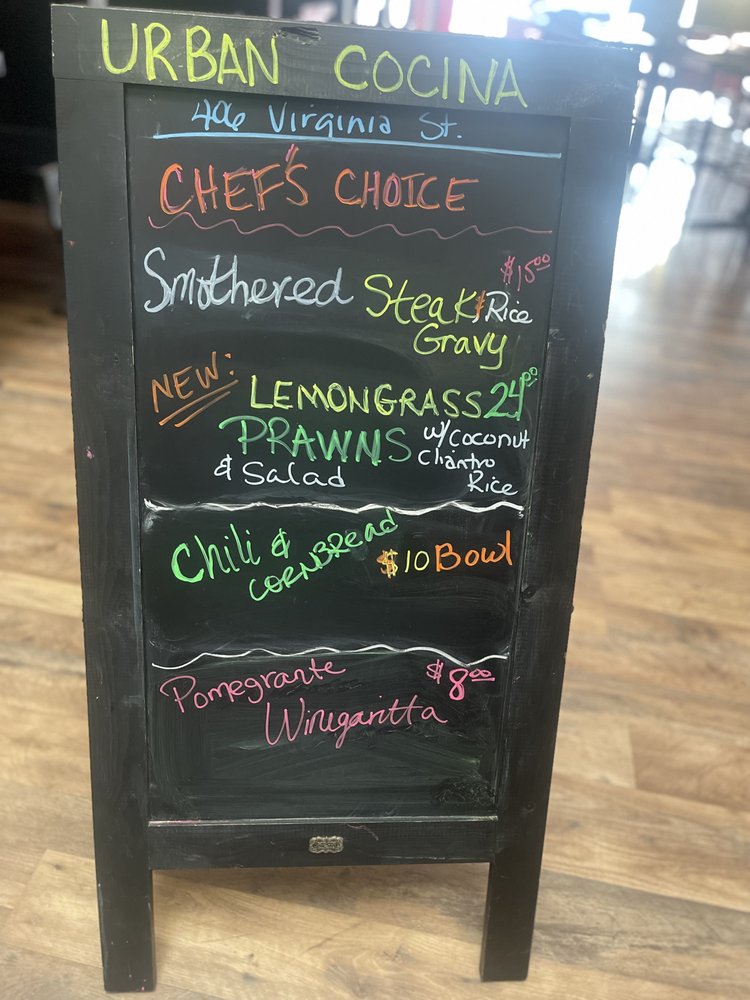 URBAN COCINA
406 Virginia St.
CHEF'S CHOICE
Smothered Steak & Rice $15.00
Gravy
NEW: LEMONGRASS 24.00
PRAWNS w/ Coconut
& Salad Cliantro
Rice
Chili & CORNBREAD $10 Bowl
Pomegrante $8.00
Winegaritta